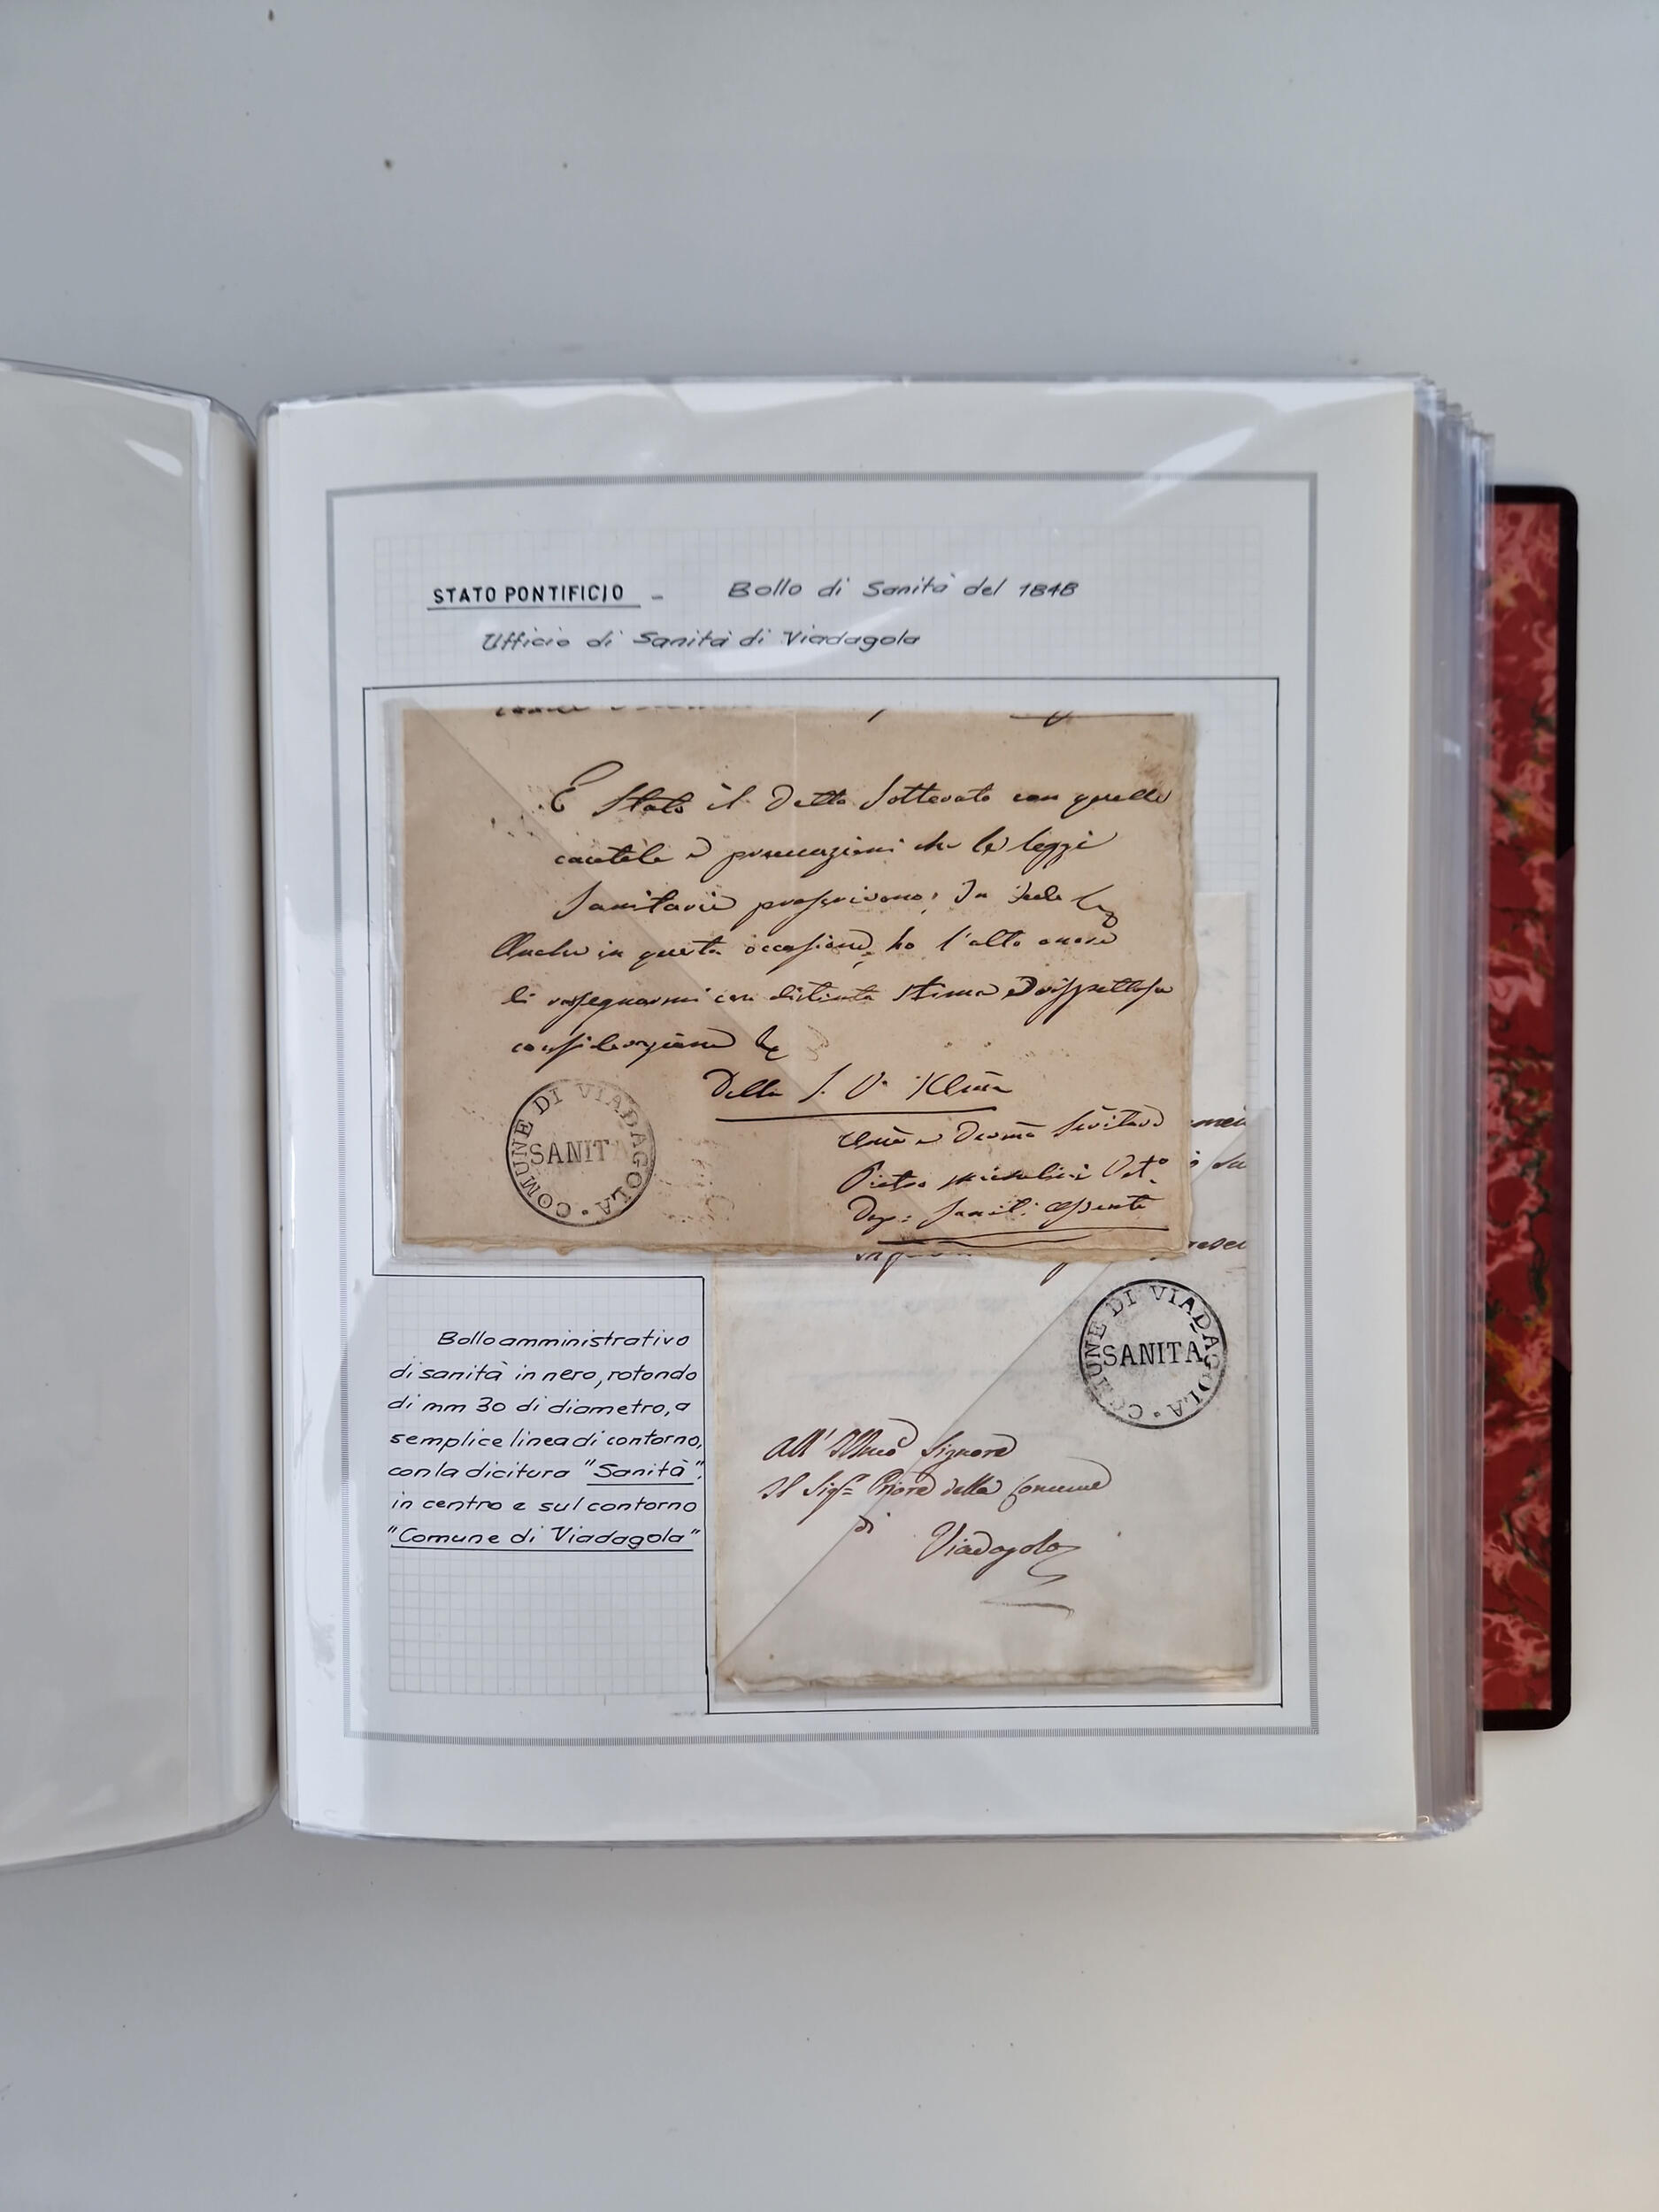 STATO PONTIFICIO - Bollo di Sanità del 1848
Ufficio di Sanità di Viadagola
È Stato il detto Sotterato con quelle
cautele e precauzioni che le leggi
Sanitarie prescrivono; In fede
Anche in questa occasione, ho l'alto onore
di rassegnarmi con distinta stima e rispettosa
considerazione
Della S. V. Illma
Pietro Michelini
COMUNE DI VIADAGOLA
SANITÀ
Bollo amministrativo
di sanità in nero, rotondo
di mm 30 di diametro, a
semplice linea di contorno,
con la dicitura "Sanità",
in centro e sul contorno
"Comune di Viadagola"
COMUNE DI VIADAGOLA
SANITÀ
All' Illmo Signore
Il Sigr Priore della Comune
di
Viadagola